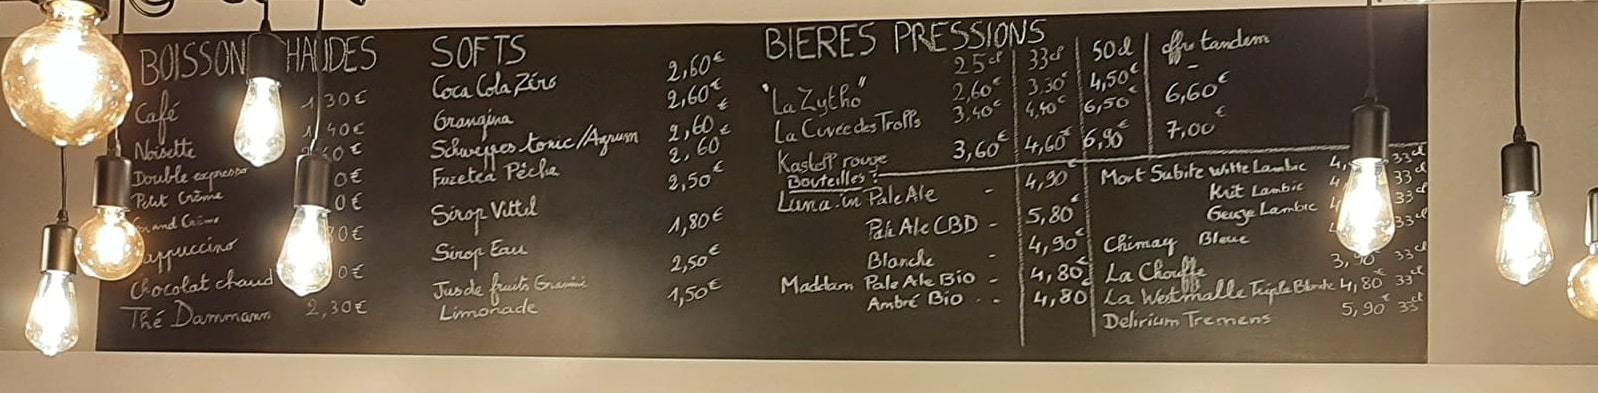 BOISSON HAUDES
Café 1,30€
Noisette 1,40€
Double expresso 0€
Petit Crème 0€
and Crème 0€
appuccino 80€
Chocolat chaud 0€
Thé Dammann 2,30€
SOFTS
Coca Cola Zéro 2,60€
Orangina 2,60€
Schweppes tonic/Agrum 2,60€
Fuzetea Pêche 2,60€
Sirop Vittel 2,50€
Sirop Eau 1,80€
Jus de fruits 2,50€
Limonade 1,50€
BIERES PRESSIONS
25cl 33cl 50cl offre tandem
"La Zytho" 2,60€ 3,30€ 4,50€ 6,60€
La Cuvée des Trolls 3,40€ 4,40€ 6,50€
Kasteel rouge 3,60€ 4,60€ 6,90€ 7,00€
Bouteilles :
Luna-in Pale Ale - 4,90€
Pale Ale CBD - 5,80€
Blanche - 4,90€
Maddam Pale Ale Bio - 4,80€
Ambré Bio - - 4,80€
Mort Subite Witte Lambic 4, 33cl
Krit Lambic 4, 33cl
Geuze Lambic 4, 33cl
Chimay Bleue 33cl
La Chouffe 3,90€ 33cl
La Westmalle Triple Blonde 4,80€ 33cl
Delirium Tremens 5,90€ 33cl